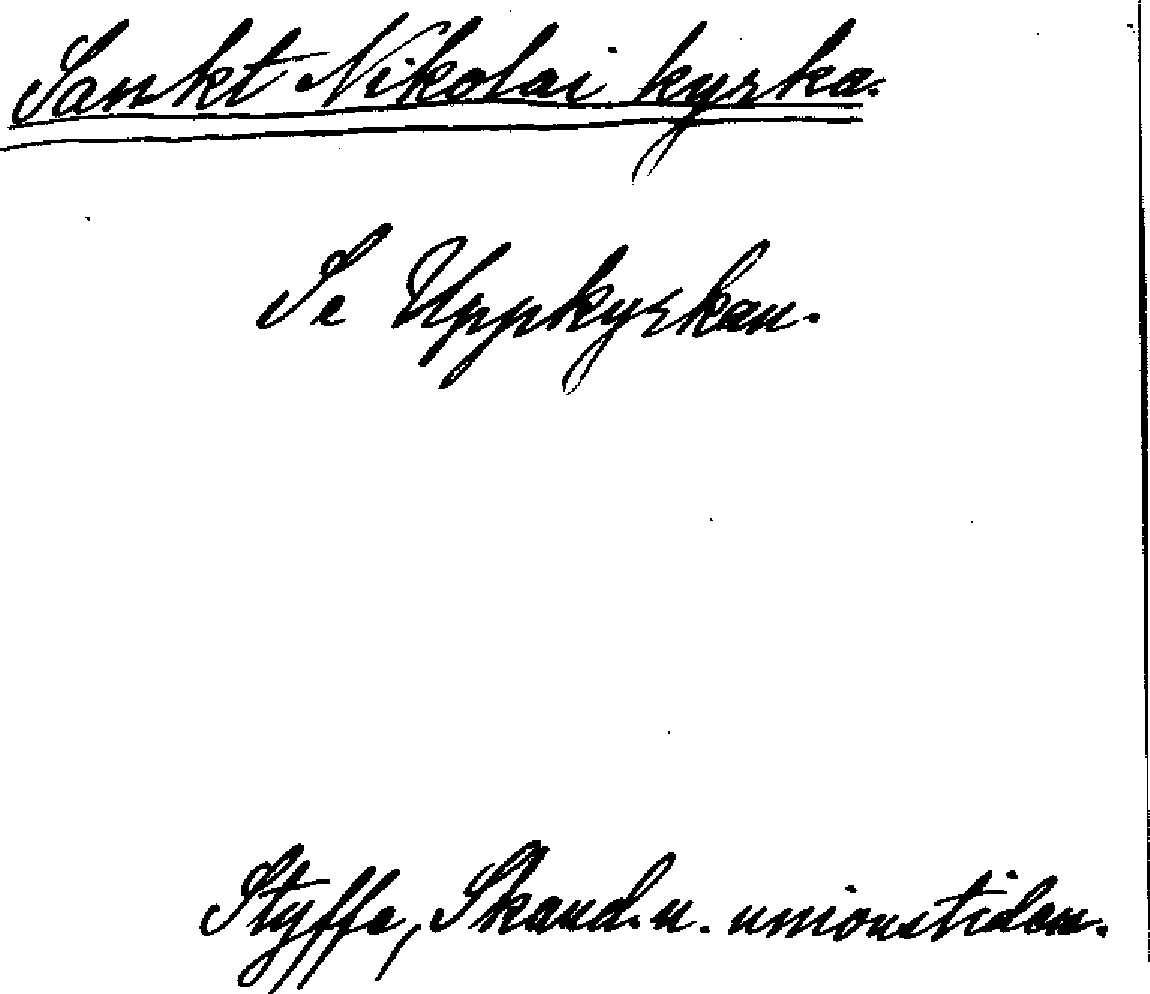 Sankt Nikolai kyrka.
Se Uppkyrkan.
Styffe, Skand. u. unionstiden.